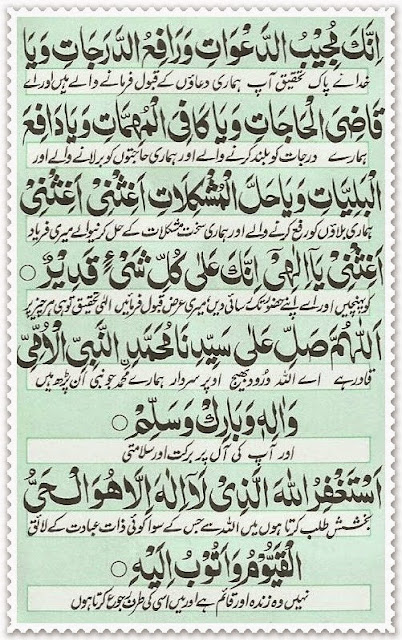 اِنَّكَ مُجِيْبُ الدَّعْوَاتِ وَرَافِعُ الدَّرَجَاتِ وَيَا
خدائے پاک تحقیق آپ ہماری دعاؤں کے قبول فرمانے والے ہیں اور اے
قَاضِىَ الْحَاجَاتِ وَيَا كَافِىَ الْمُهِمَّاتِ وَيَا دَافِعَ
ہمارے درجات کو بلند کرنے والے اور ہماری حاجتوں کو بر لانے والے اور
الْبَلِيَّاتِ وَيَا حَلَّ الْمُشْكِلَاتِ اَغِثْنِىْ اَغِثْنِىْ
ہماری بلاؤں کو رفع کرنے والے اور ہماری سخت مشکلات کے حل کرنیوالے میری فریاد
اَغِثْنِىْ يَآ اِلٰهِىْ اِنَّكَ عَلٰى كُلِّ شَىْءٍ قَدِيْرٌ ○
کو پہنچیں اور اے اپنے حضور تک رسائی دیں میری عرض قبول فرمائیں الہی تحقیق تو ہی ہر چیز پر
اَللّٰهُمَّ صَلِّ عَلٰى سَيِّدِنَا مُحَمَّدِ النَّبِىِّ الْاُمِّىِّ
قادر ہے اے اللہ درود بھیج اوپر سردار ہمارے محمدؐ جو نبی اُن پڑھ ہیں
وَاٰلِهٖ وَبَارِكْ وَسَلِّمْ ○
اور آپ کی آل پر برکت اور سلامتی
اَسْتَغْفِرُ اللهَ الَّذِىْ لَآ اِلٰهَ اِلَّا هُوَ الْحَىُّ
بخشش طلب کرتا ہوں میں اللہ سے جس کے سوا کوئی ذات عبادت کے لائق
الْقَيُّوْمُ وَاَتُوْبُ اِلَيْهِ ○
نہیں وہ زندہ اور قائم ہے اور میں اسی کی طرف رجوع کرتا ہوں